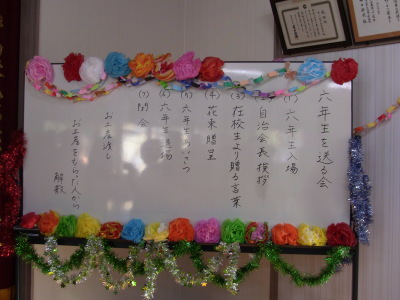 六年生を送る会
(1) 六年生入場
(2) 自治会長挨拶
(3) 在校生より贈る言葉
(4) 花束贈呈
(5) 六年生あいさつ
(6) 六年生退場
(7) 閉会
お土産渡し
お土産をもらった人から
解散